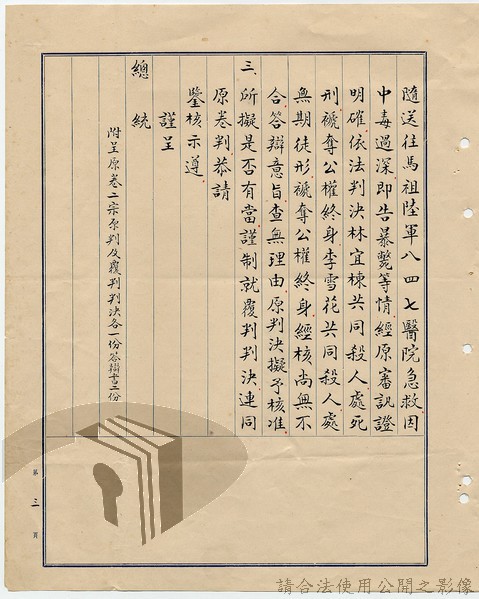 隨送往馬祖陸軍八四七醫院急救因
中毒過深即告暴斃等情經原審訊證
明確依法判決林宜棟共同殺人處死
刑褫奪公權終身李雪花共同殺人處
無期徒刑褫奪公權終身經核尚無不
合答辯意旨查無理由原判決擬予核准
三、所擬是否有當謹制就覆判判決連同
原卷判恭請
鑒核示遵
謹呈
總統
附呈原卷二宗原判及覆判判決各一份答辯書二份
第三頁
請合法使用公開之影像